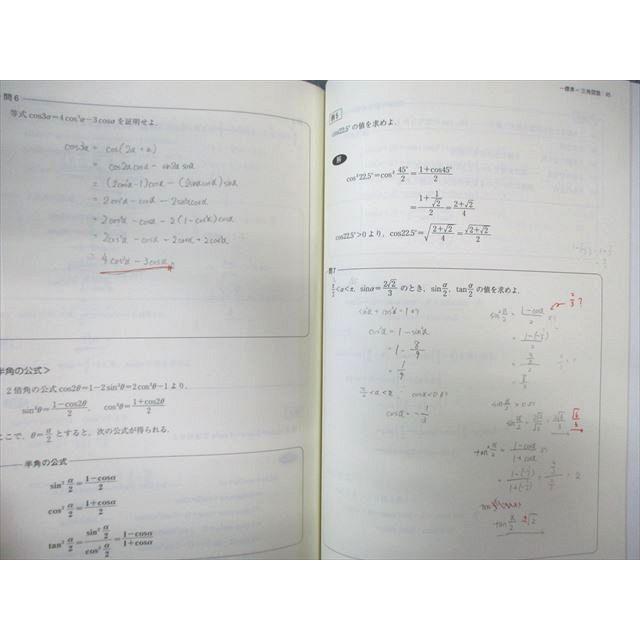 問6
等式 cos3α=4cos³α-3cosα を証明せよ.
cos3α = cos(2α+α)
= cos2α cosα - sin2α sinα
= (2cos²α-1)cosα - (2sinαcosα)sinα
= 2cos³α - cosα - 2sin²αcosα
= 2cos³α - cosα - 2(1-cos²α)cosα
= 2cos³α - cosα - 2cosα + 2cos³α
= 4cos³α - 3cosα
半角の公式>
2倍角の公式 cos2θ=1-2sin²θ=2cos²θ-1より,
sin²θ=(1-cos2θ)/2, cos²θ=(1+cos2θ)/2
ここで, θ=α/2 とすると, 次の公式が得られる.
半角の公式
sin²α/2=(1-cosα)/2
cos²α/2=(1+cosα)/2
tan²α/2=(sin²α/2)/(cos²α/2)=(1-cosα)/(1+cosα)
三角関数
例5
cos22.5°の値を求めよ.
解
cos²22.5°=cos²45°/2=(1+cos45°)/2
=(1+1/√2)/2=(2+√2)/4
cos22.5°>0より, cos22.5°=√((2+√2)/4)=√(2+√2)/2
問7
π/2<α<π, sinα=2√2/3 のとき, sinα/2, tanα/2 の値を求めよ.
sin²α + cos²α = 1
cos²α = 1 - sin²α
= 1 - 8/9
= 1/9
π/2<α<π cosα<0
cosα = -1/3
sin²α/2 = (1-cosα)/2
2/3?
= (1-(-1/3))/2
sinα/2
√6/3
tan²α/2 = (1-cosα)/(1+cosα)
= (1-(-1/3))/(1+(-1/3)) = 2
tanα/2 √2